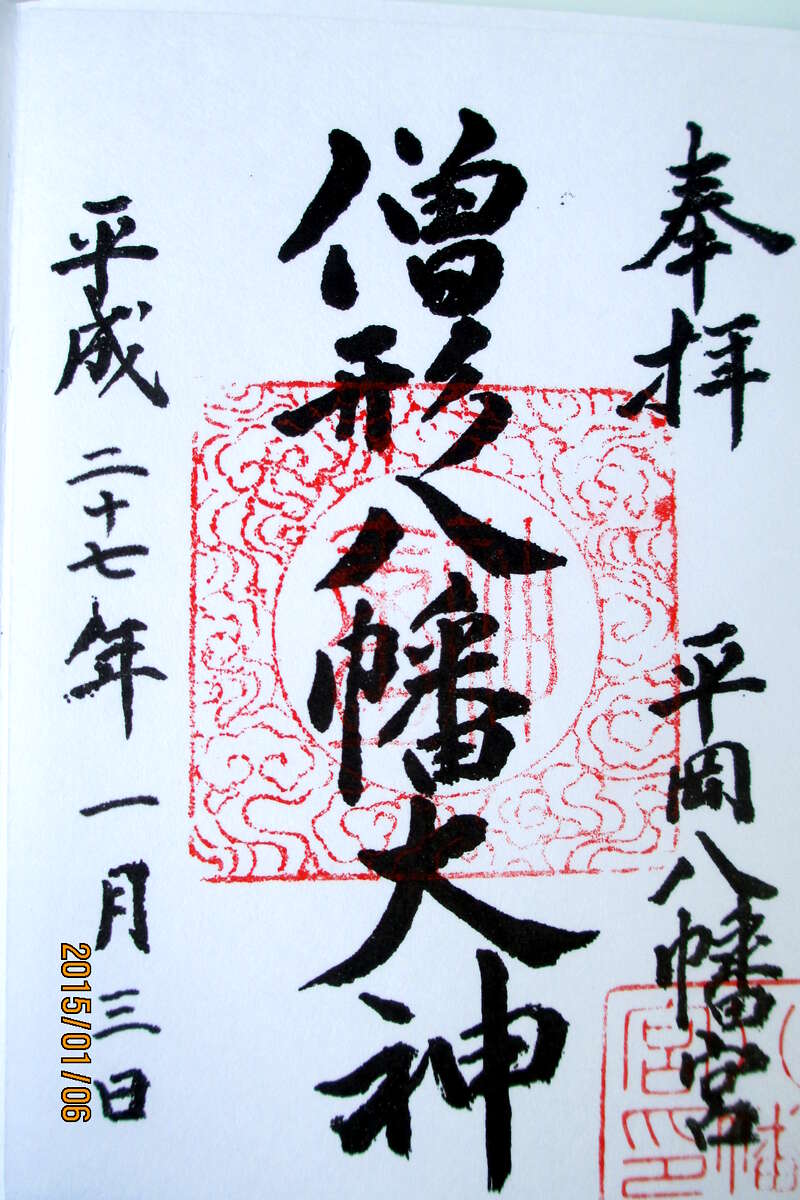 奉拝
平岡八幡宮
僧形八幡大神
平成二十七年一月三日
2015/01/06